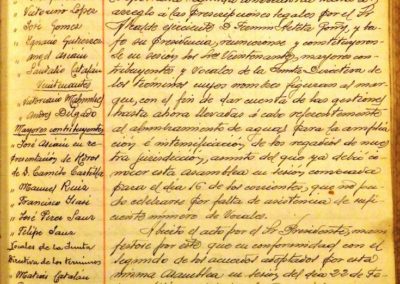 " Victorino López
" José Gomez
" Ignacio Gutierrez
" José Ascaso
" Victoriano
" Andres Delgado
Mayores contribuyentes
" José Ascaso en re
presentación de Hros
de D. Camilo Castilla
" Manuel Ruiz
" Francisco Grasi
" José Perez Sanz
" Felipe Sanz
Vocales de la Junta
Directiva de los terminos
" Matias Catalan
arreglo a las prescripciones legales por el Sr
Alcalde ejerciente D. Fermin
su Presidencia, numerosas
en sesión los Sres Tenientes, mayores con-
tribuyentes y Vocales de la Junta Directiva de
los terminos cuyos nombres figuran al mar-
gen, con el fin de dar cuenta de las gestiones
hasta ahora llevadas á cabo referentemente
al alumbramiento de aguas para la amplia-
ción é intensificación de los regadios de nues-
tra jurisdicción, asunto del que ya debió co-
nocer esta asamblea en sesión convocada
para el dia 16 de los corrientes, que no pu-
do celebrarse por falta de asistencia de sufi-
ciente número de Vocales.
Abierto el acto por el Sr. Presidente, mani-
festose por este que en conformidad con el
segundo de los acuerdos adoptados por esta
misma Asamblea en sesión del dia 22 de